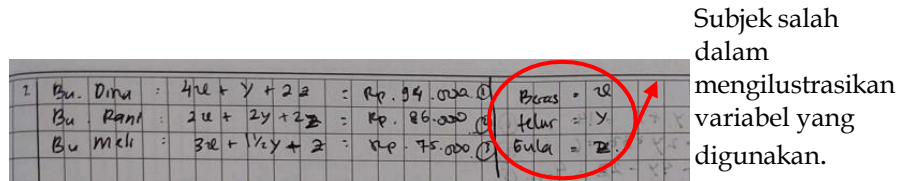 2 Bu. Dina : 4x + y + 2z = Rp. 94.000 ① Beras = x
Bu. Rani : 2x + 2y + 2z = Rp. 86.000 ② telur = y
Bu Meli : 3x + 1½y + z = Rp. 75.000 ③ Gula = z
Subjek salah
dalam
mengilustrasikan
variabel yang
digunakan.